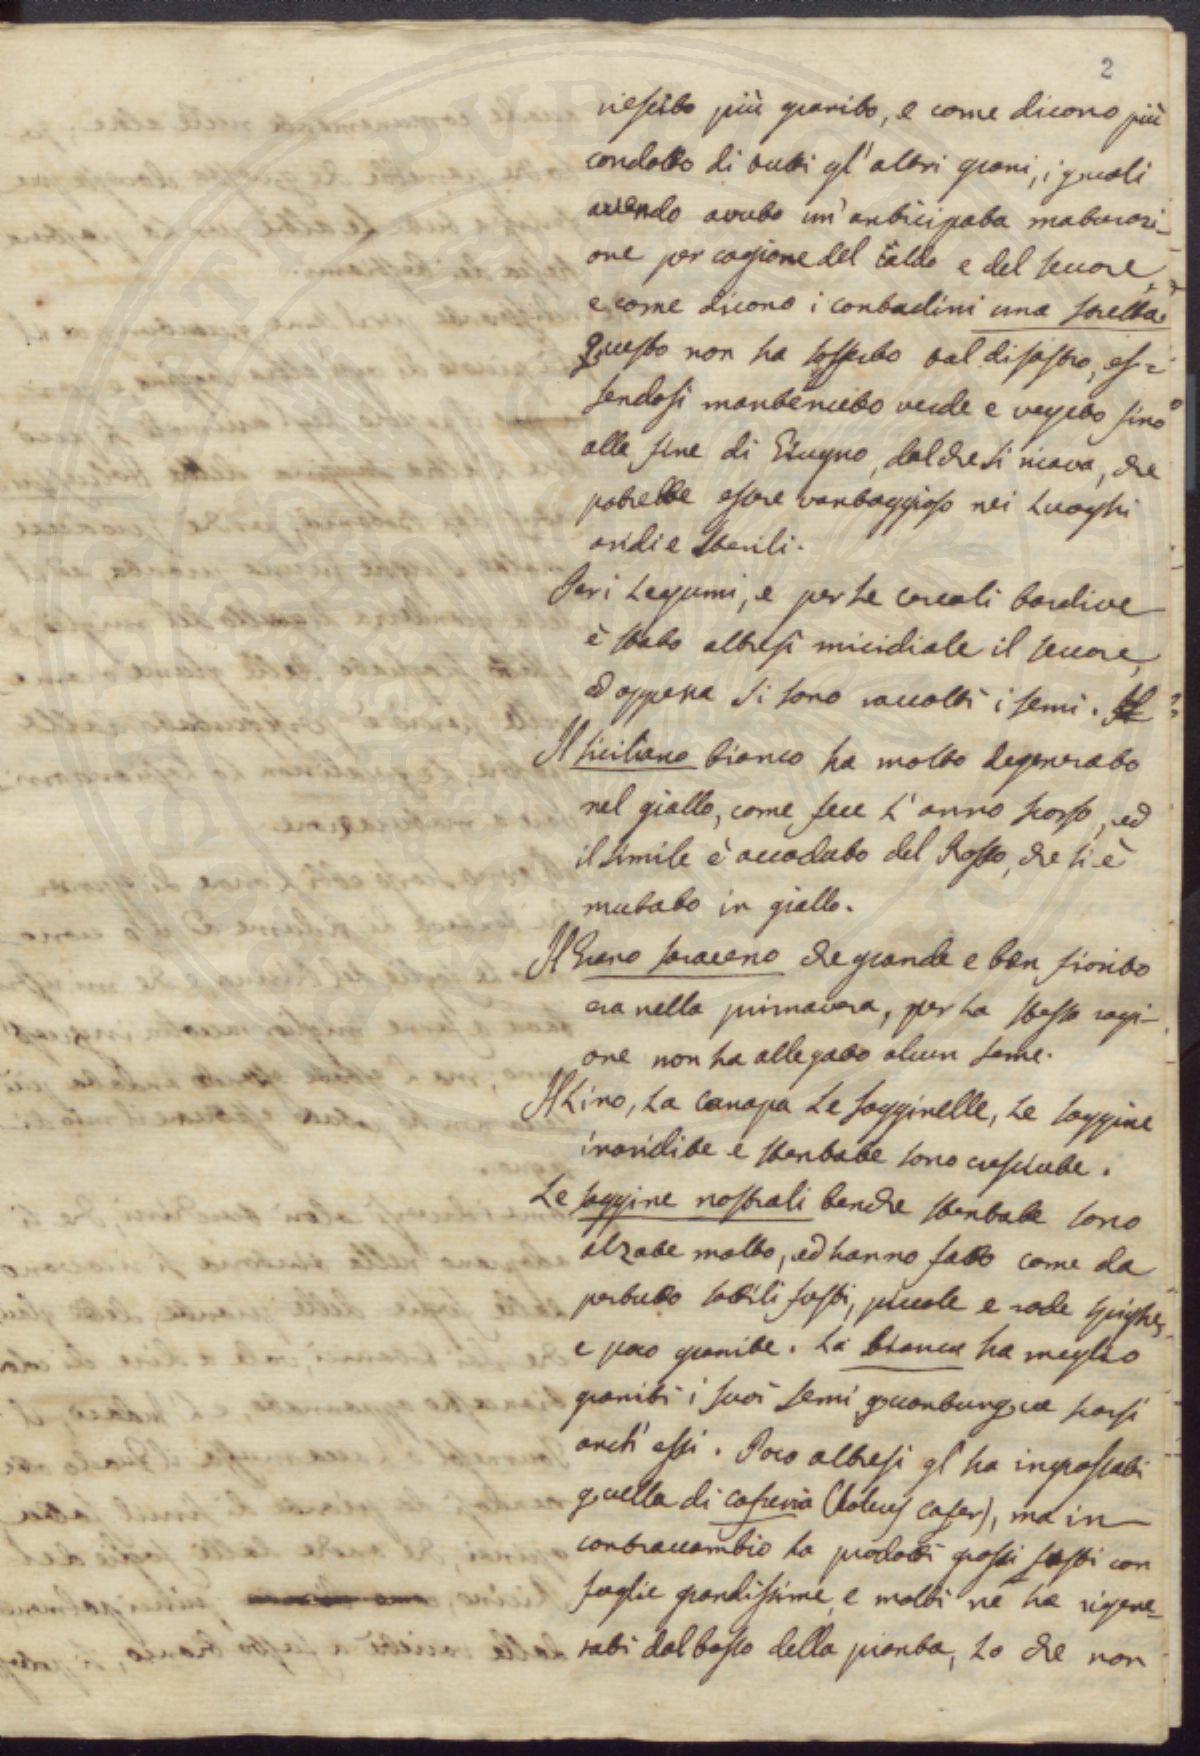 2
riescito più granito, e come dicono più
condotto di tutti gl'altri grani, i quali
avendo avuto un'anticipata maturazi-
one per cagione del caldo e del seccore,
e come dicono i contadini una stretta.
Questo non ha sofferto tal disastro, es-
sendosi mantenuto verde e vegeto fino
alla fine di Giugno, dal che si ricava, che
potrebbe essere vantaggioso nei luoghi
aridi e sterili.
Per i Legumi, e per le cereali tardive
è stato altresì micidiale il seccore,
ed appena si sono raccolti i semi.
Il siciliano bianco ha molto degenerato
nel giallo, come fece l'anno scorso, ed
il simile è accaduto del Rosso, che si è
mutato in giallo.
Il Grano saraceno che grande e ben fiorito
era nella primavera, per la stessa ragi-
one non ha allegato alcun seme.
Il Lino, La Canapa Le sagginelle, Le saggine
inaridite e stentate sono cresciute.
Le saggine nostrali benche stentate sono
alzate molto, ed hanno fatto come da
pertutto sottili fusti, piccole e rade spighe,
e poco granite. La bianca ha meglio
graniti i suoi semi quantunque scarsi
anch'essi. Poco altresi gl'ha ingrossati
quella di cafreria (holcus cafer), ma in
contraccambio ha prodotti grossi fusti con
foglie grandissime, e molti ne ha rigene-
rati dal basso della pianta, Lo che non